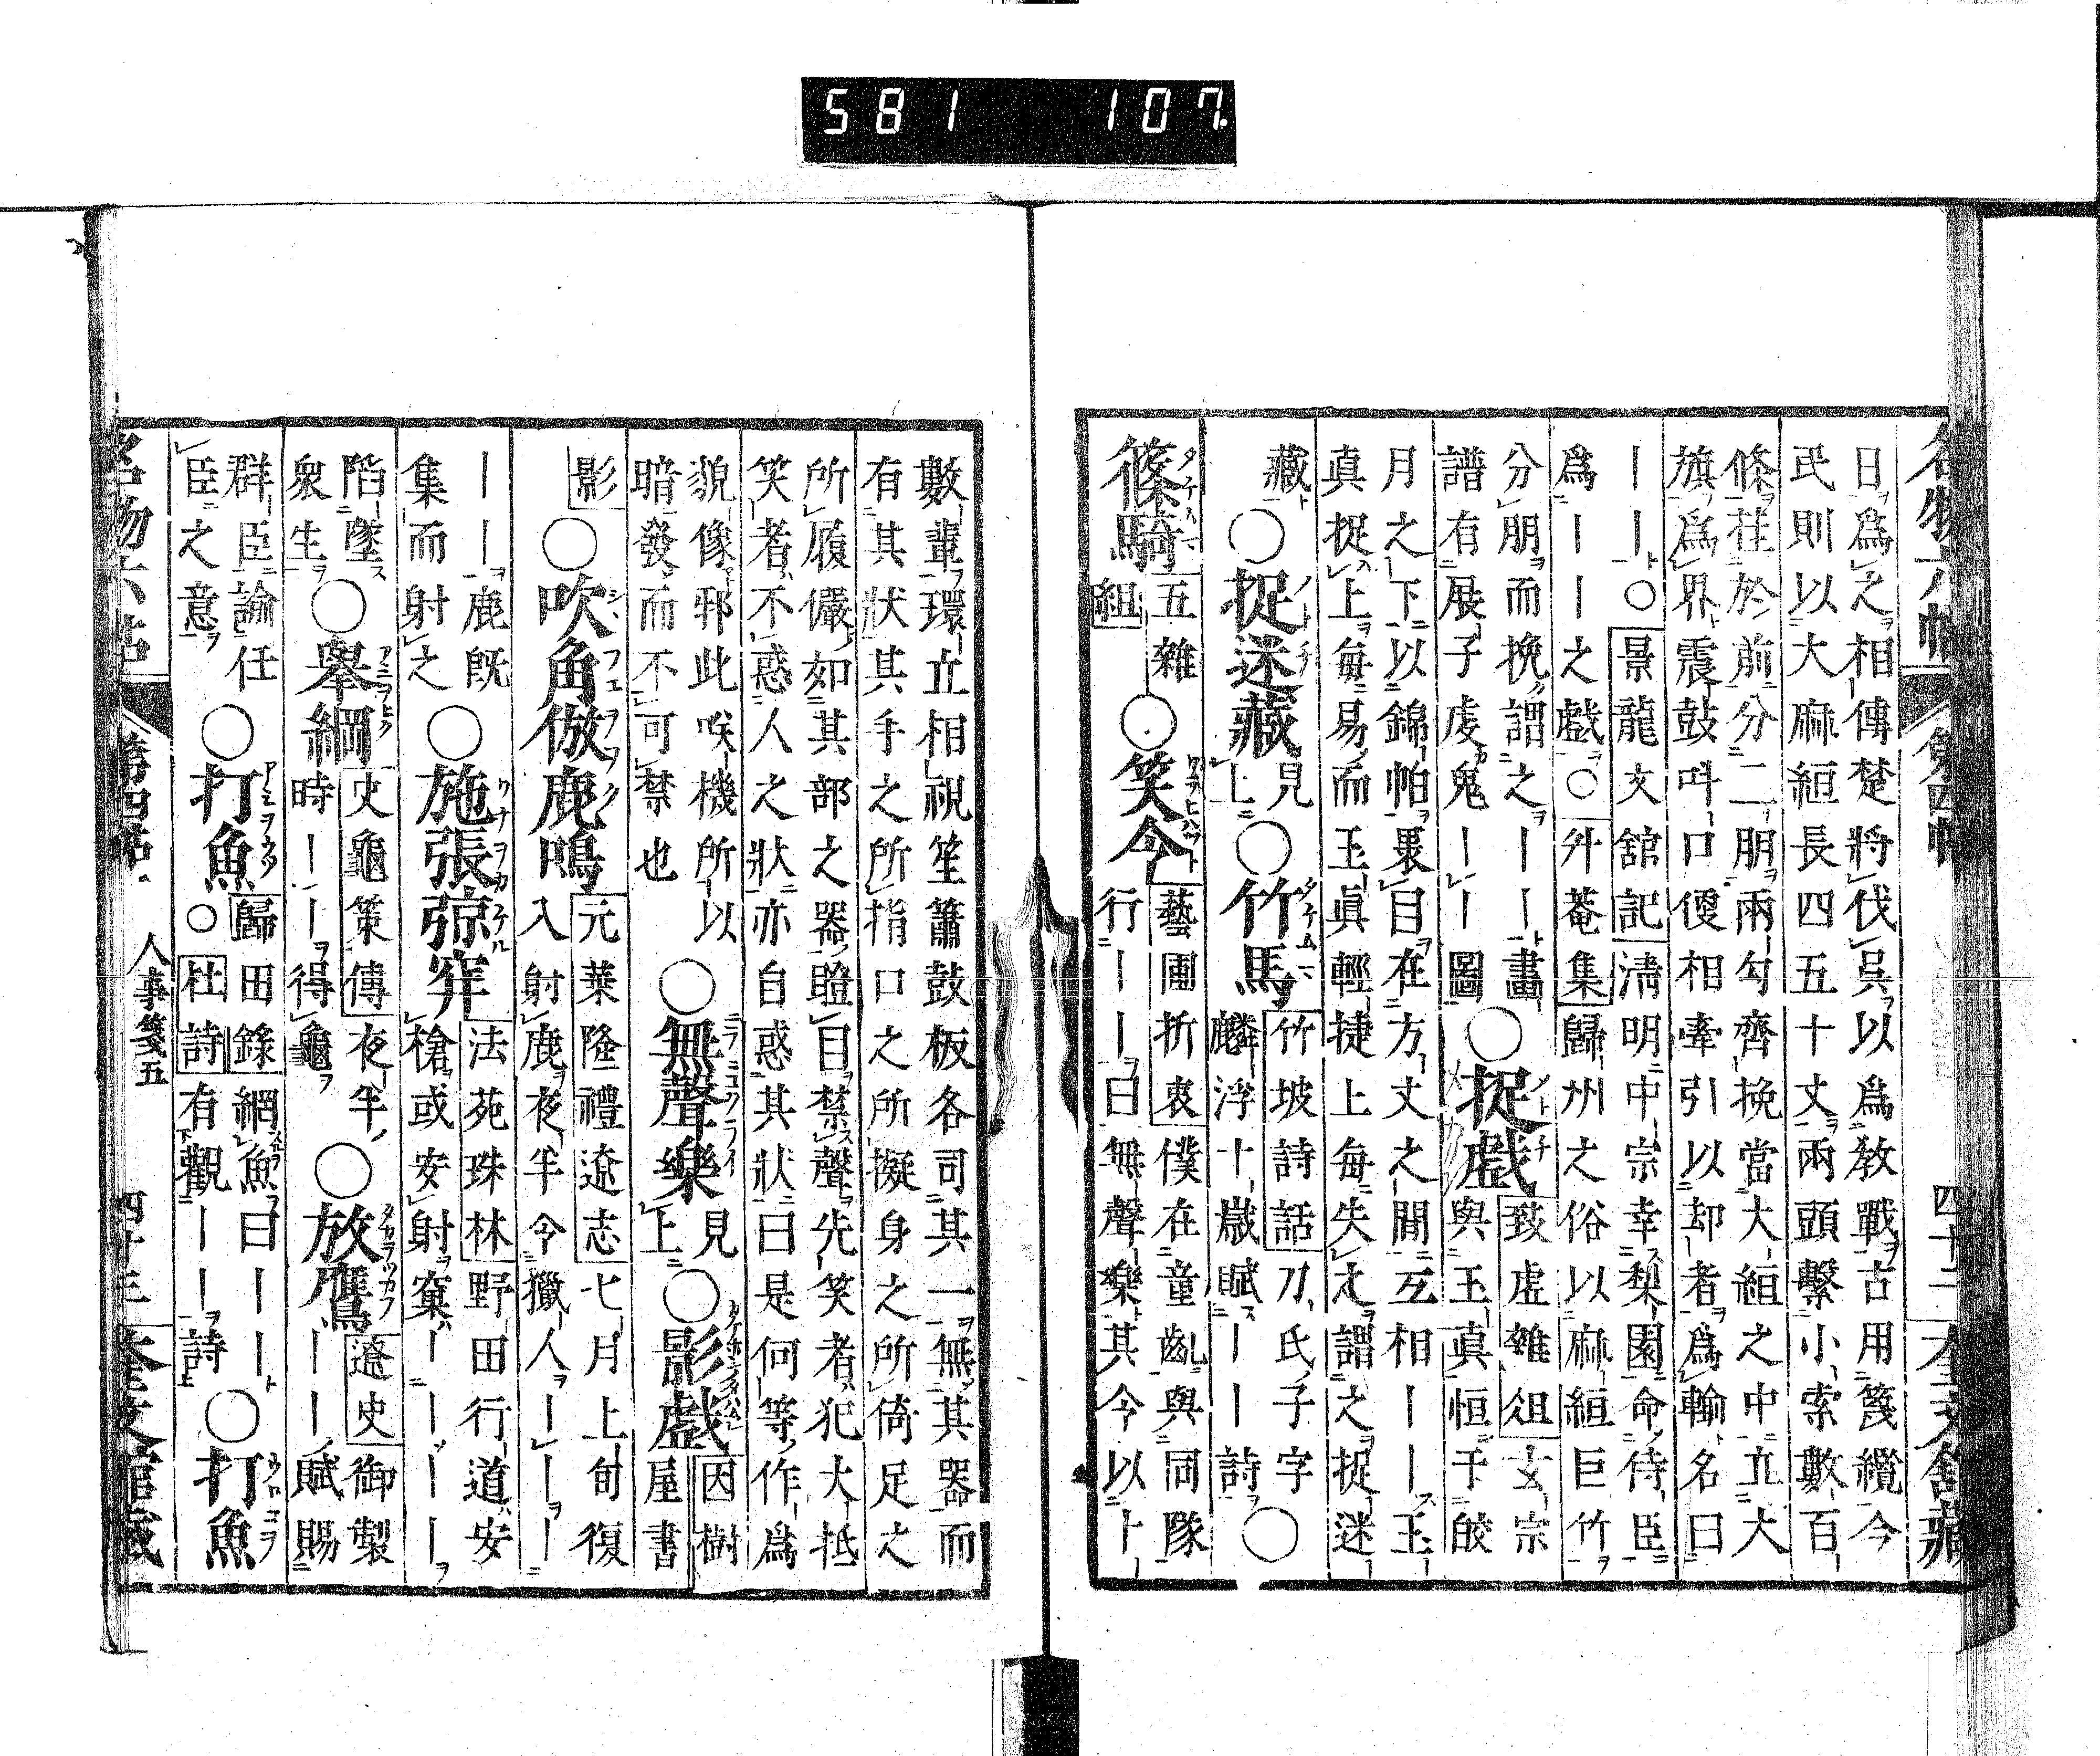 581 107.
名物六帖 第四帖 四十二 奎文舘藏
日爲之相傳楚將伐呉以爲敎戰古用篾纜今
民則以大麻絙長四五十丈兩頭繫小索數百
條挂於前分二朋兩勾齊挽當大絙之中立大
旗爲界震鼓呌口偠相牽引以却者爲輸名曰
丨丨○景龍文舘記淸明中宗幸梨園命侍臣
爲丨丨之戲○舛菴集歸州之俗以麻絙巨竹
分朋而挽謂之丨丨畫
譜有展子虔鬼丨丨圖
○捉戲
致虚雜俎玄宗
與玉眞恒于皎
月之下以錦帕裹目在方丈之間互相丨丨玉
眞捉上每易而玉眞輕捷上每失之謂之捉迷
藏
○捉迷藏
見上
○竹馬
竹坡詩話刀氏子字
麟浮十歲賦丨丨詩
○
篠騎
五雜
組
○笑令
藝圃折衷僕在童齓與同隊
行丨丨曰無聲樂其令以十
數輩環立相視笙簫鼓板各司其一無其器而
有其狀其手之所指口之所擬身之所倚足之
所履儼如其部之器瞪目禁聲先笑者犯大抵
笑者不惑人之狀亦自惑其狀曰是何等作爲
貌像邪此咲機所以
暗發而不可禁也
○無聲樂
見上
○影戲
因樹
屋書
影
○吹角倣鹿鳴
元葉隆禮遼志七月上旬復
入射鹿夜半令獵人丨丨丨
丨丨鹿旣
集而射之
○施張弶穽
法苑珠林野田行道安
槍或安射窠丨丨丨丨
陷墜
衆生
○舉網
史龜策傳夜半
時丨丨得龜
○放鷹
遼史御製
丨丨賦賜
群臣諭任
臣之意
○打魚
歸田錄網魚曰丨丨
○杜詩有觀丨丨詩
○打魚
名物六帖 第四帖 人事箋五 四十三 奎文舘藏